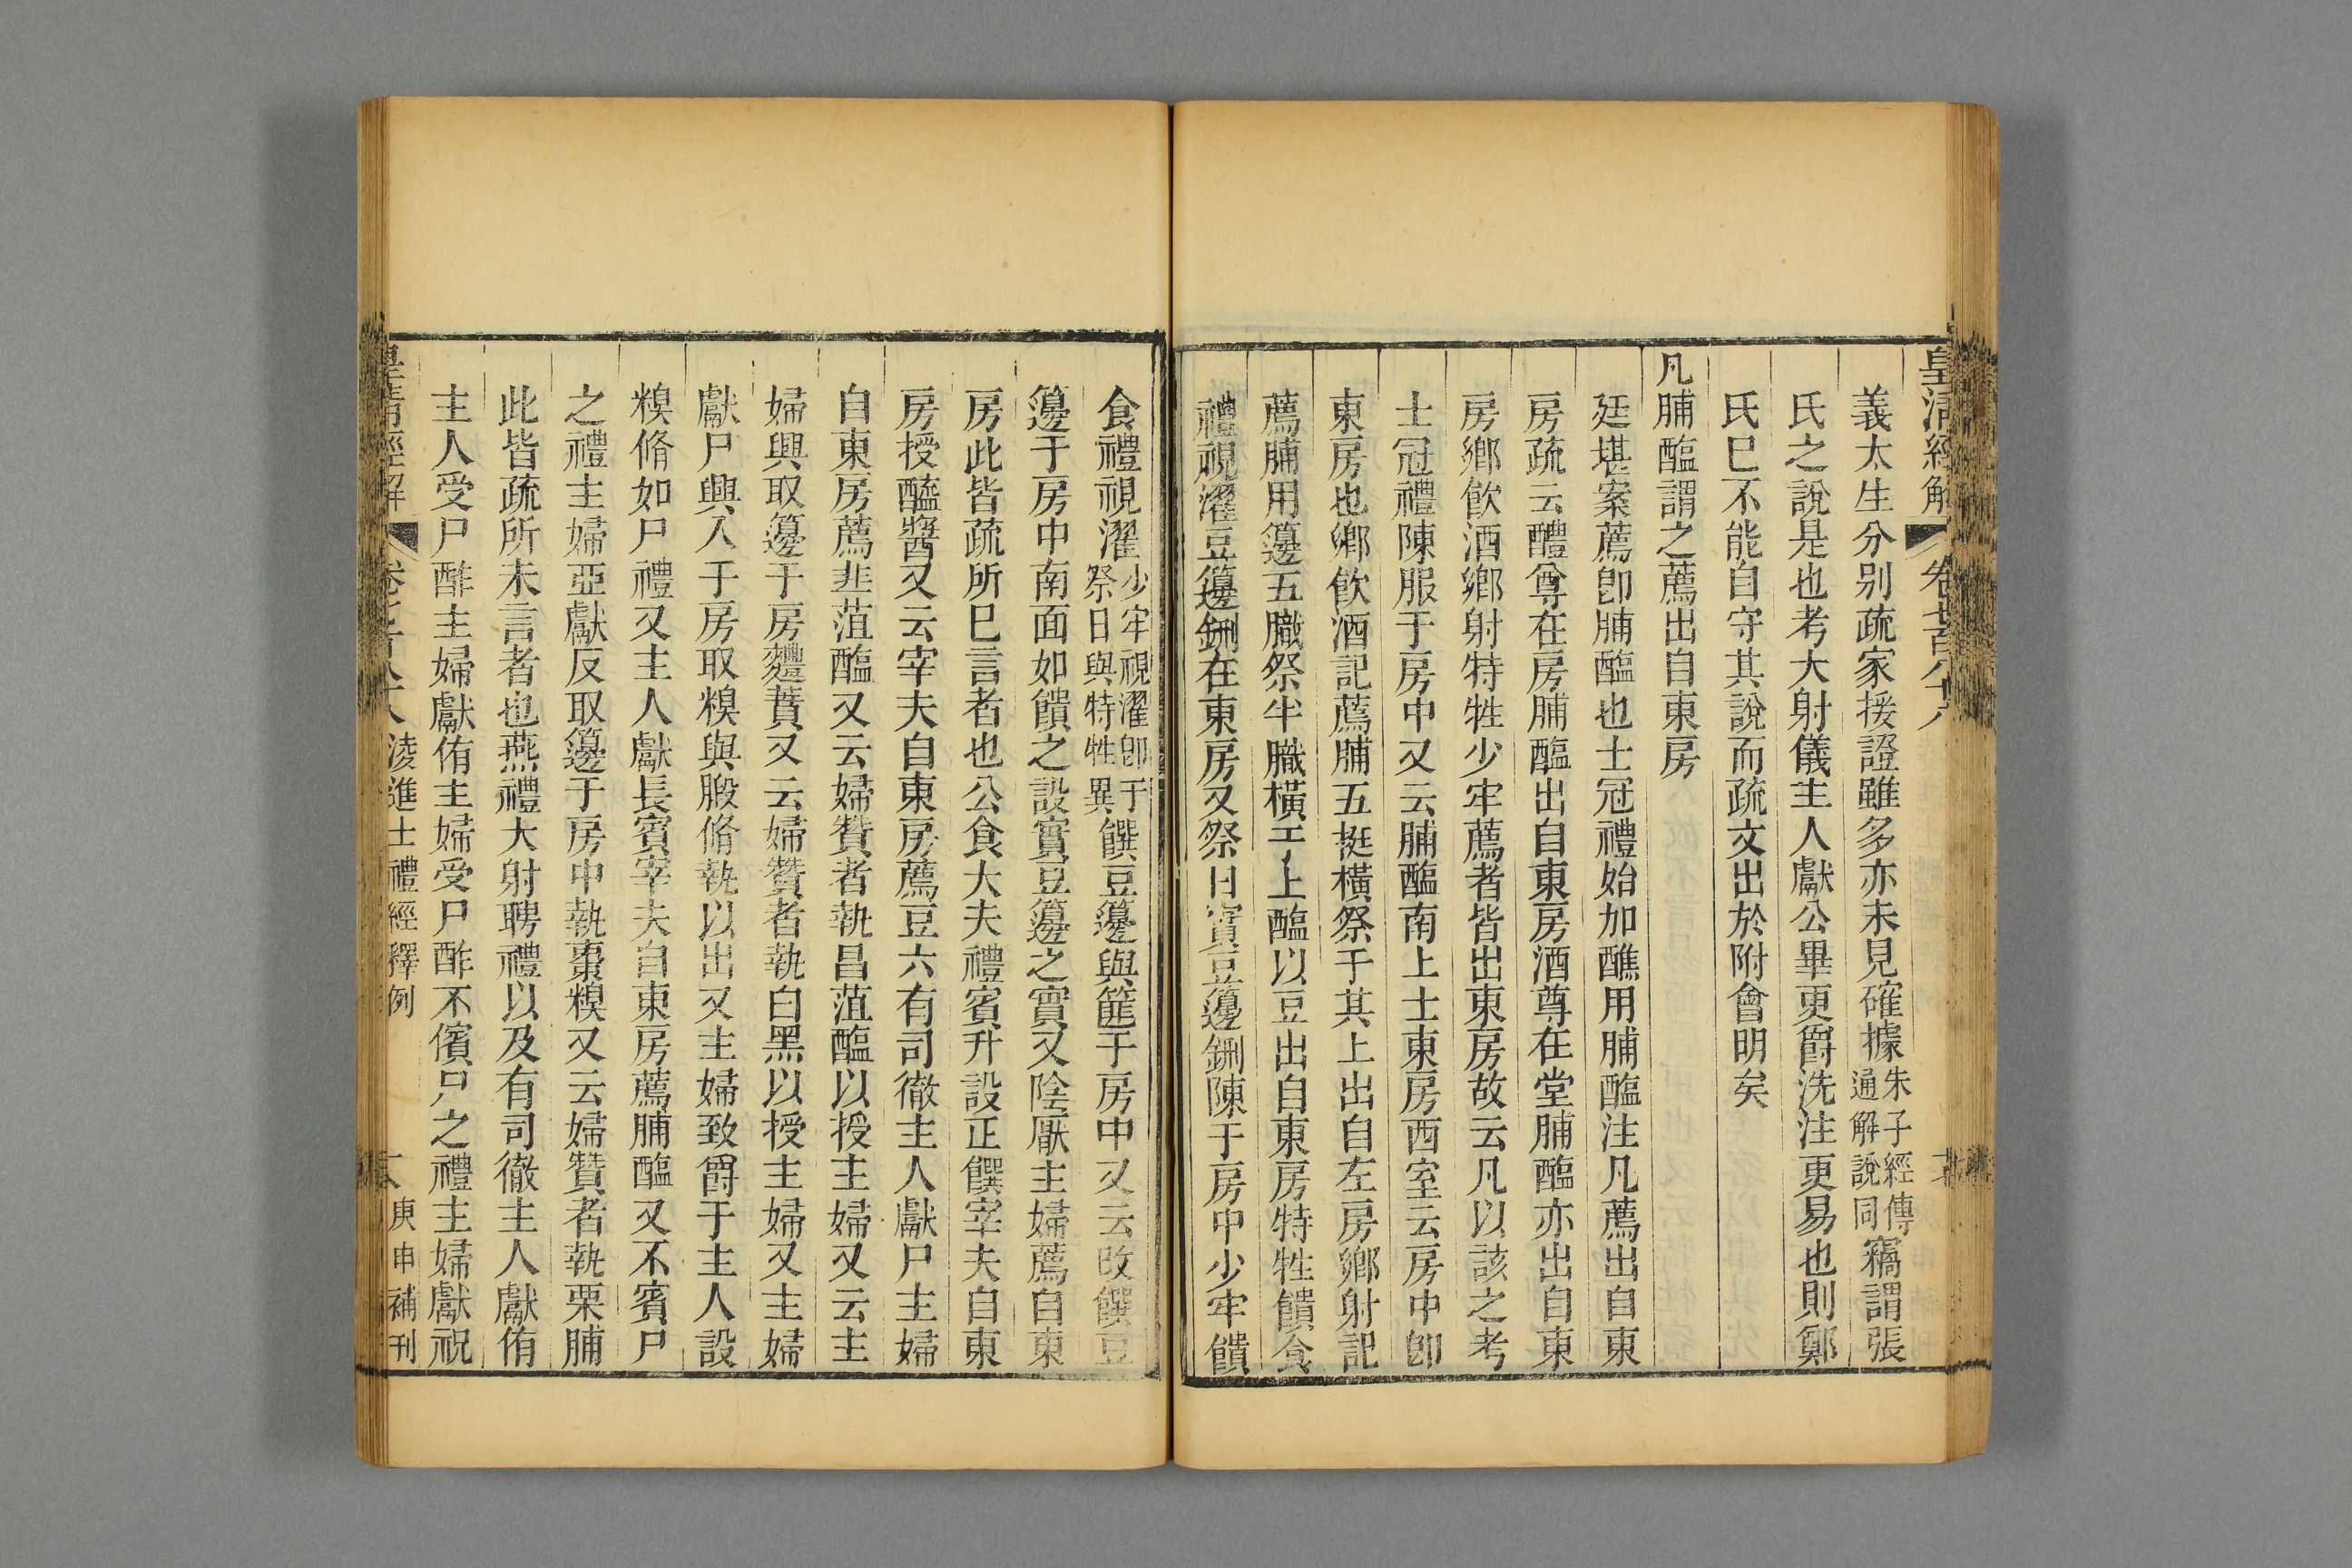 皇清經解 卷七百八十八
義太生分别疏家援證雖多亦未見確據朱子經傳通解說同竊謂張
氏之說是也考大射儀主人獻公畢更爵洗注更易也則鄭
氏巳不能自守其說而疏文出於附會明矣
凡脯醢謂之薦出自東房
廷堪案薦卽脯醢也士冠禮始加醮用脯醢注凡薦出自東
房疏云醴尊在房脯醢出自東房酒尊在堂脯醢亦出自東
房鄉飮酒鄉射特牲少牢薦者皆出東房故云凡以該之考
士冠禮陳服于房中又云脯醢南上士東房西室云房中卽
東房也鄉飮酒記薦脯五挺橫祭于其上出自左房鄉射記
薦脯用籩五膱祭半膱橫于上醢以豆出自東房特牲饋食
禮視濯豆籩鉶在東房又祭日實豆籩鉶陳于房中少牢饋
食禮視濯少牢視濯卽于祭日與特牲異饌豆籩與篚于房中又云改饌豆
籩于房中南面如饋之設實豆籩之實又陰厭主婦薦自東
房此皆疏所巳言者也公食大夫禮賓升設正饌宰夫自東
房授醯醬又云宰夫自東房薦豆六有司徹主人獻尸主婦
自東房薦韭菹醢又云婦贊者執昌菹醢以授主婦又云主
婦興取籩于房麷蕡又云婦贊者執白黑以授主婦又主婦
獻尸興入于房取糗與腶脩執以出又主婦致爵于主人設
糗脩如尸禮又主人獻長賓宰夫自東房薦脯醢又不賓尸
之禮主婦亞獻反取籩于房中執棗糗又云婦贊者執栗脯
此皆疏所未言者也燕禮大射聘禮以及有司徹主人獻侑
主人受尸酢主婦獻侑主婦受尸酢不儐尸之禮主婦獻祝
皇清經解 卷七百八十八 淩進士禮經釋例 庚申補刊